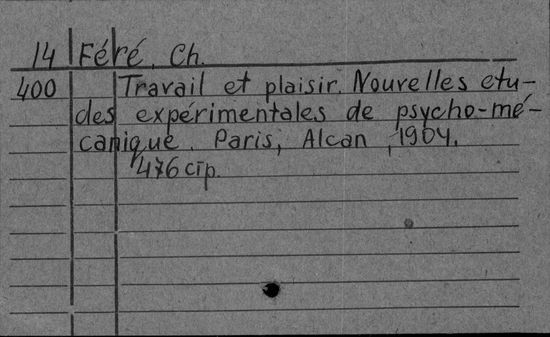 14 Féré, Ch.
400 Travail et plaisir. Nouvelles etu-
des expérimentales de psycho-mé-
canique. Paris, Alcan, 1904.
476 cтр.